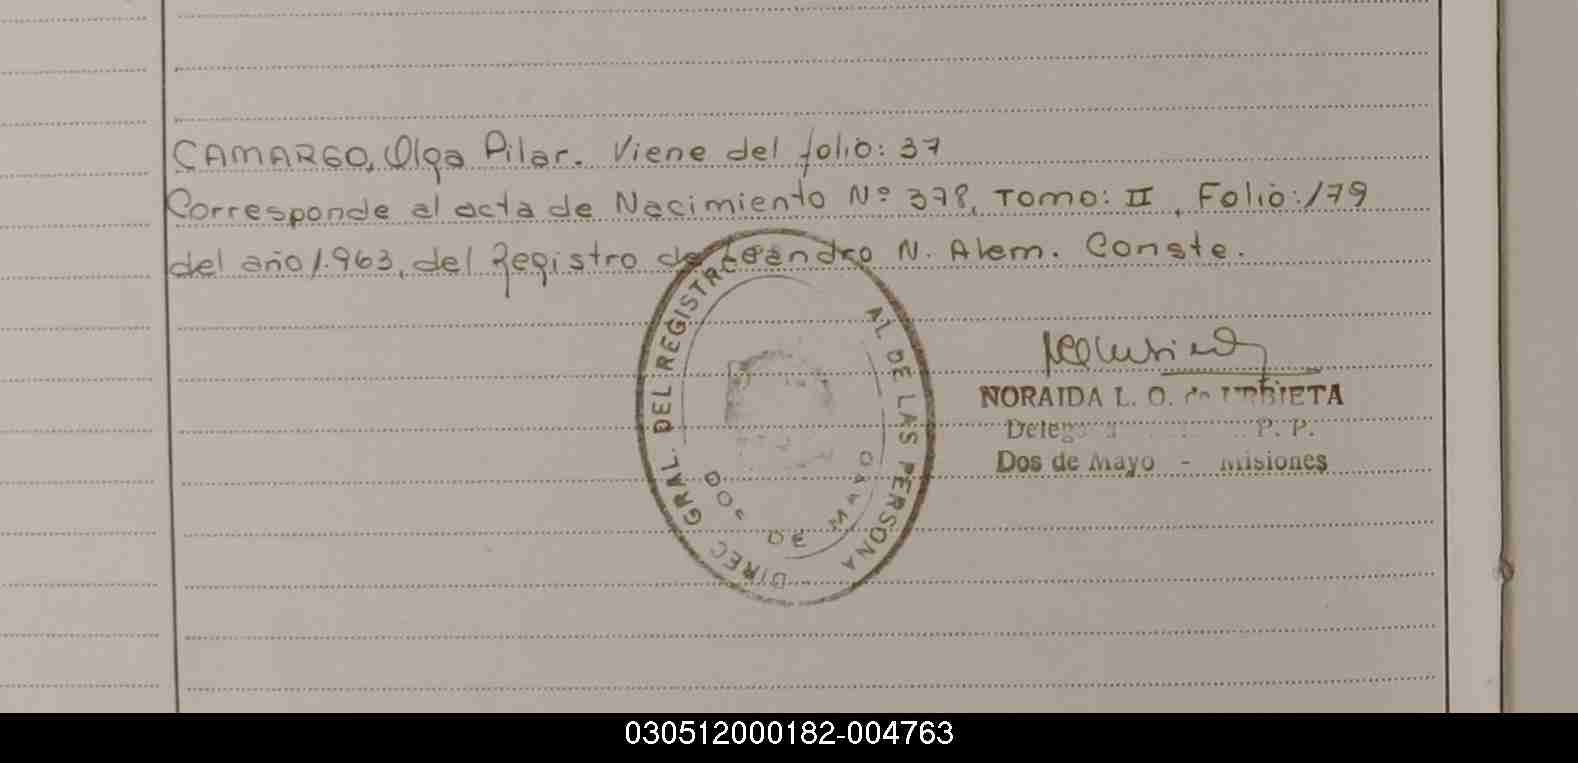 CAMARGO, Olga Pilar. Viene del folio: 37
Corresponde al acta de Nacimiento Nº 378, Tomo: II, Folio: 179
del año 1.963, del Registro de Leandro N. Alem. Conste.
DIREC GRAL. DEL REGISTR AL DE LAS PERSONA
DOS DE MAYO
NORAIDA L. O. de URBIETA
P. P.
Dos de Mayo - Misiones
030512000182-004763